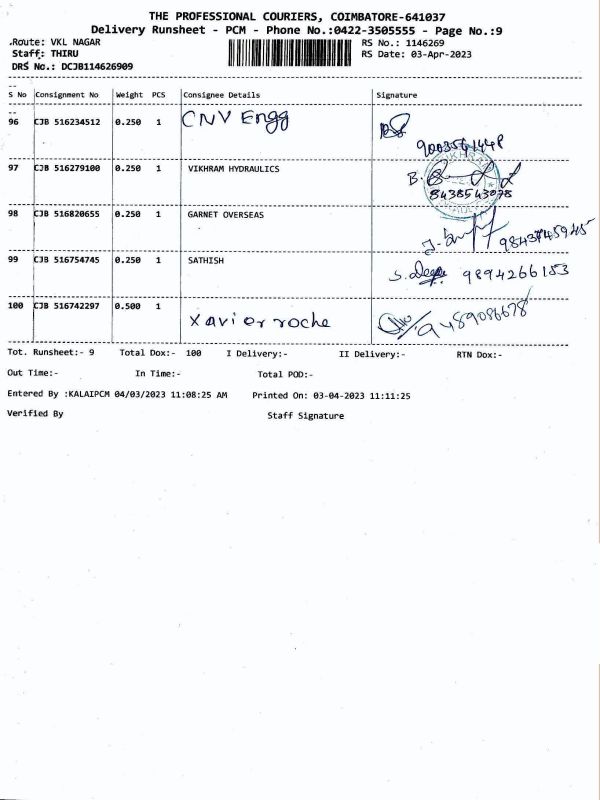 THE PROFESSIONAL COURIERS, COIMBATORE-641037
Delivery Runsheet - PCM - Phone No.:0422-3505555 - Page No.:9
.Route: VKL NAGAR RS No.: 1146269
Staff: THIRU RS Date: 03-Apr-2023
DRS No.: DCJB114626909
S No Consignment No Weight PCS Consignee Details Signature
96 CJB 516234512 0.250 1 CNV Engg
97 CJB 516279100 0.250 1 VIKHRAM HYDRAULICS
8438543078
98 CJB 516820655 0.250 1 GARNET OVERSEAS
99 CJB 516754745 0.250 1 SATHISH 9894266153
100 CJB 516742297 0.500 1 Xavier roche
Tot. Runsheet:- 9 Total Dox:- 100 I Delivery:- II Delivery:- RTN Dox:-
Out Time:- In Time:- Total POD:-
Entered By :KALAIPCM 04/03/2023 11:08:25 AM Printed On: 03-04-2023 11:11:25
Verified By Staff Signature